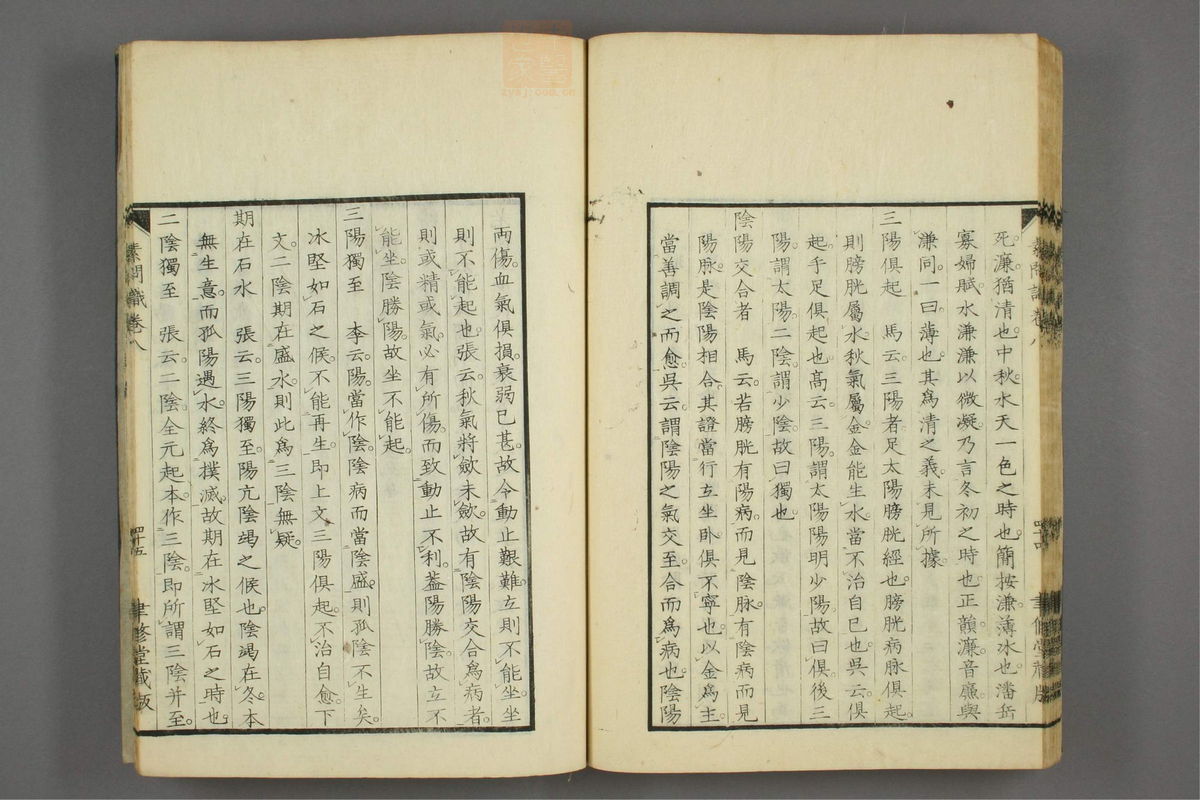 死濂猶清也中秋水天一色之時也簡按濂薄冰也潘岳
寡婦賦水濂濂以微凝乃言冬初之時也正韻濂音廉與
濂同一曰薄也其爲清之義未見所據
三陽俱起 馬云三陽者足太陽膀胱經也膀胱病脉俱起
則膀胱屬水秋氣屬金金能生水當不治自已也吳云俱
起手足俱起也高云三陽謂太陽陽明少陽故曰俱後三
陽謂太陽二陰謂少陰故曰獨也
陰陽交合者 馬云若膀胱有陽病而見陰脉有陰病而見
陽脉是陰陽相合其證當行立坐卧俱不寧也以金爲主
當善調之而愈吳云謂陰陽之氣交至合而爲病也陰陽
素問識卷八
四十四
聿修堂藏版
両傷血氣俱損衰弱已甚故令動止艱難立則不能坐坐
則不能起也張云秋氣將斂未斂故有陰陽交合爲病者
則或精或氣必有所傷而致動止不利蓋陽勝陰故立不
能坐陰勝陽故坐不能起
三陽獨至 李云陽當作陰陰病而當陰盛則孤陰不生矣
冰堅如石之候不能再生即上文三陽俱起不治自愈下
文二陰期在盛水則此爲三陰無疑
期在石水 張云三陽獨至陽亢陰竭之候也陰竭在冬本
無生意而孤陽遇水終爲撲滅故期在冰堅如石之時也
二陰獨至 張云二陰全元起本作三陰即所謂三陰并至
素問識卷八
四十五
聿修堂藏版
zysj.com.cn